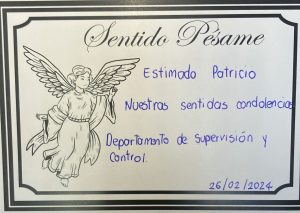 Sentido Pésame
Estimado Patricio
Nuestras sentidas condolencias
Departamento de Supervisión y
Control.
26/02/2024